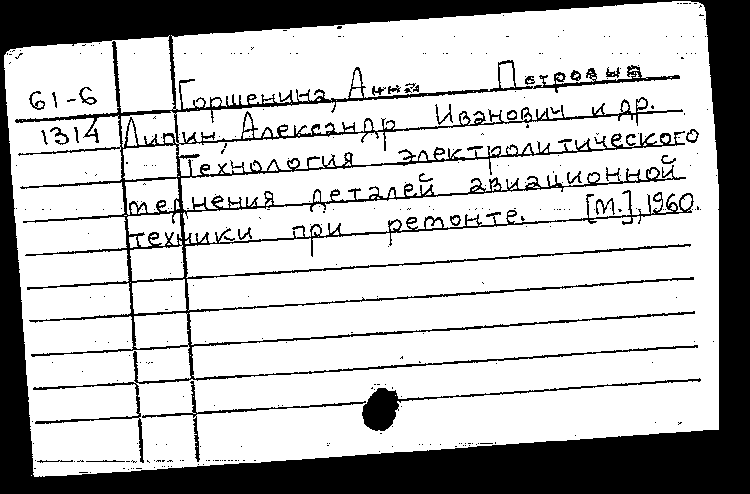 61-6 Горшенина, Анна Петровна
1314 Липин, Александр Иванович и др.
Технология электролитического
теднения деталей авиационной
техники при ремонте. [М.], 1960.